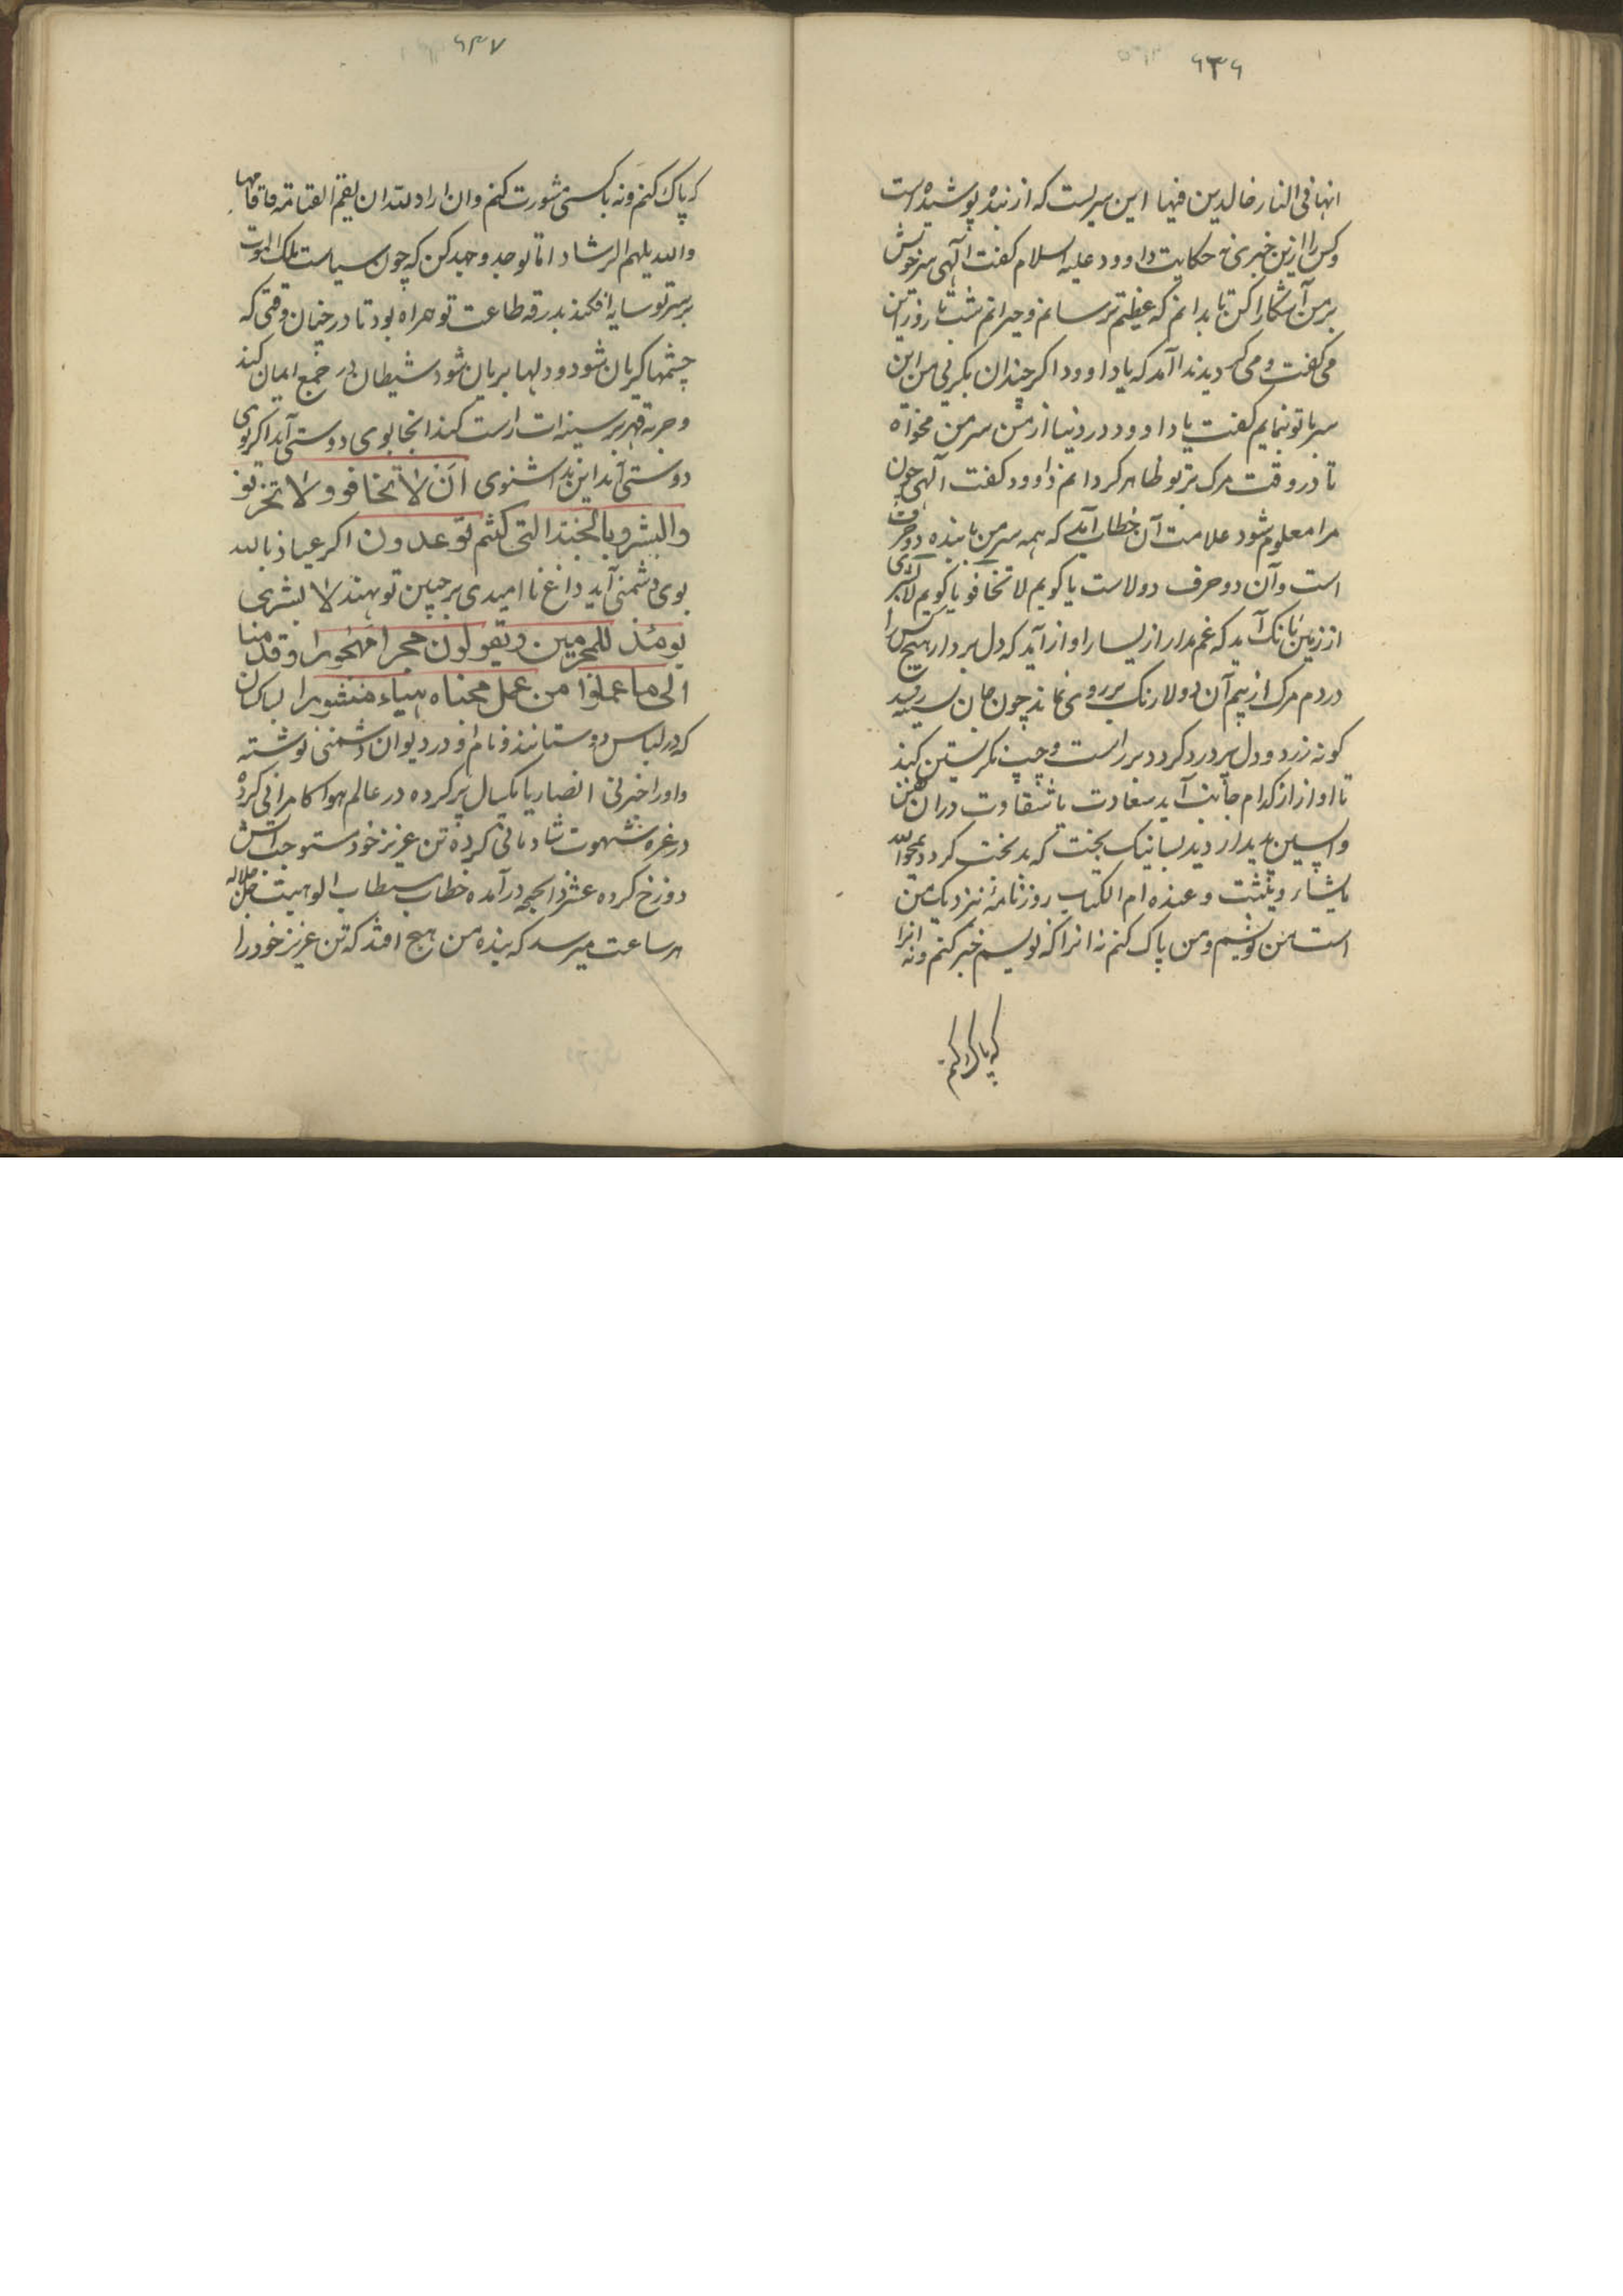 ۶۳۶
انها فی النار خالدین فیها این سریست که از بنده پوشیده است
و کس را ازین خبری نه حکایت داوود علیه السلام کفت الهی سر خویش
بر من آشکارا کن تا بدانم که عظیم ترسانم و حیرانم شب تا روز این
می کفت و می کردید ندا آمد که یا داوود اکر چندان بکریی من این
سر با تو ننمایم کفت یا داوود در دنیا از من سر من مخواه
تا در وقت مرک بر تو ظاهر کردانم داوود کفت الهی چون
مرا معلوم شود علامت آن خطاب آمد که همه سر من با بنده دو حرف
است و آن دو حرف دو لاست یا کویم لا تخافو یا کویم لا بشری
از زمین بانک آید که غم مدار از یسار اواز آید که دل بردار هیچ کس را
در دم مرک از بیم آن دو لا رنک بر روی نماند چون جان بسینه رسد
کونه زرد و دل پر درد کردد بر راست و چپ نکرستن کیند
تا اواز از کدام جانب آید سعادت یا شقاوت در ان
واپسین پدیدار دید بسا نیک بخت که بدبخت کردد یمحوا الله
مایشاء ویثبت وعنده ام الکتاب روزنامه نزدیک من
است من نویسم و من پاک کنم نه انرا که نویسم خبر کنم و نه انرا
که پاک کنم
۶۳۷
که پاک کنم و نه باکسی مشورت کنم وان اراد
والله یلهم الرشاد اما تو جد و جهد کن که چون سیاست ملک الموت
بر سر تو سایه افکند بدرقه طاعت تو همراه بود تا در چنان وقتی که
چشمها کریان شود و دلها بریان شود شیطان در جمع ایمان کند
و حربه قهر بر سینه ات راست کند انجا بوی دوستی آید اکر بوی
دوستی آید این ندا شنوی ان لا تخافو و لا تحزنو
والبشرو بالجنة التی کنتم توعدون اکر عیاذ بالله
بوی دشمنی آید داغ نا امیدی بر جبین تو نهند لا بشری
یومئذ للمجرمین ویقولون حجرا محجورا وقدمنا
الی ما عملوا من عمل فجعلناه هباء منثورا بسا کسان
که در لباس دوستانند و نام او در دیوان دشمنی نوشته
و او را خبر نی پر کرده در عالم هوا کامرانی کرده
در غره شهوت شادمانی کرده تن عزیز خود مستوجب آتش
دوزخ کرده درآمده خطاب الوهیت جل جلاله
هر ساعت میرسد که بنده من هیچ افتد که تن عزیز خود را